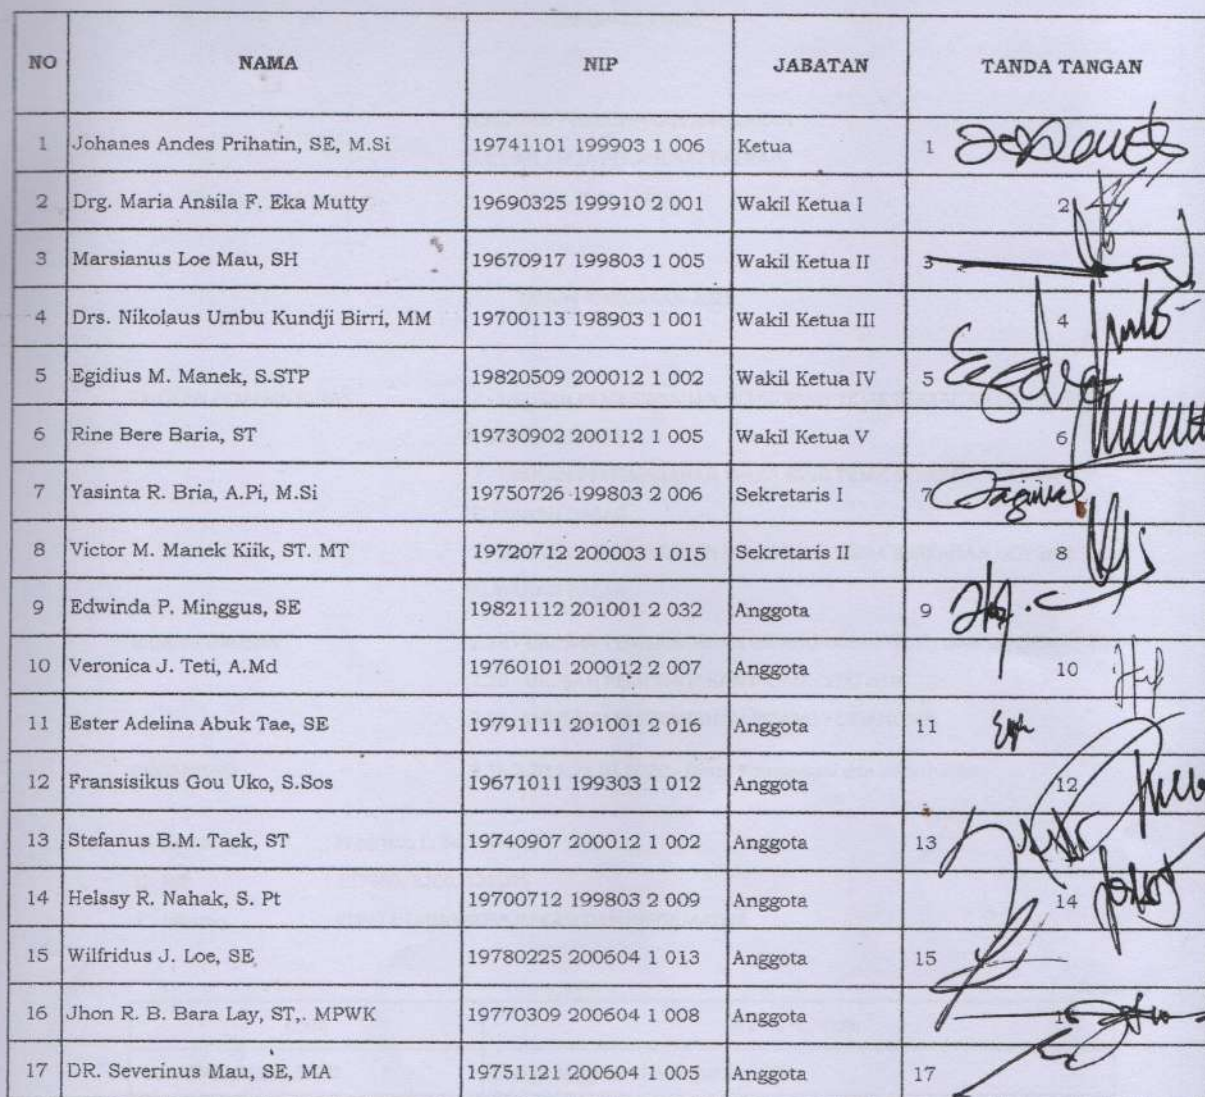 NO NAMA NIP JABATAN TANDA TANGAN
1 Johanes Andes Prihatin, SE, M.Si 19741101 199903 1 006 Ketua 1
2 Drg. Maria Ansila F. Eka Mutty 19690325 199910 2 001 Wakil Ketua I 2
3 Marsianus Loe Mau, SH 19670917 199803 1 005 Wakil Ketua II 3
4 Drs. Nikolaus Umbu Kundji Birri, MM 19700113 198903 1 001 Wakil Ketua III 4
5 Egidius M. Manek, S.STP 19820509 200012 1 002 Wakil Ketua IV 5
6 Rine Bere Baria, ST 19730902 200112 1 005 Wakil Ketua V 6
7 Yasinta R. Bria, A.Pi, M.Si 19750726 199803 2 006 Sekretaris I 7
8 Victor M. Manek Kiik, ST. MT 19720712 200003 1 015 Sekretaris II 8
9 Edwinda P. Minggus, SE 19821112 201001 2 032 Anggota 9
10 Veronica J. Teti, A.Md 19760101 200012 2 007 Anggota 10
11 Ester Adelina Abuk Tae, SE 19791111 201001 2 016 Anggota 11
12 Fransisikus Gou Uko, S.Sos 19671011 199303 1 012 Anggota 12
13 Stefanus B.M. Taek, ST 19740907 200012 1 002 Anggota 13
14 Helssy R. Nahak, S. Pt 19700712 199803 2 009 Anggota 14
15 Wilfridus J. Loe, SE 19780225 200604 1 013 Anggota 15
16 Jhon R. B. Bara Lay, ST,. MPWK 19770309 200604 1 008 Anggota 16
17 DR. Severinus Mau, SE, MA 19751121 200604 1 005 Anggota 17